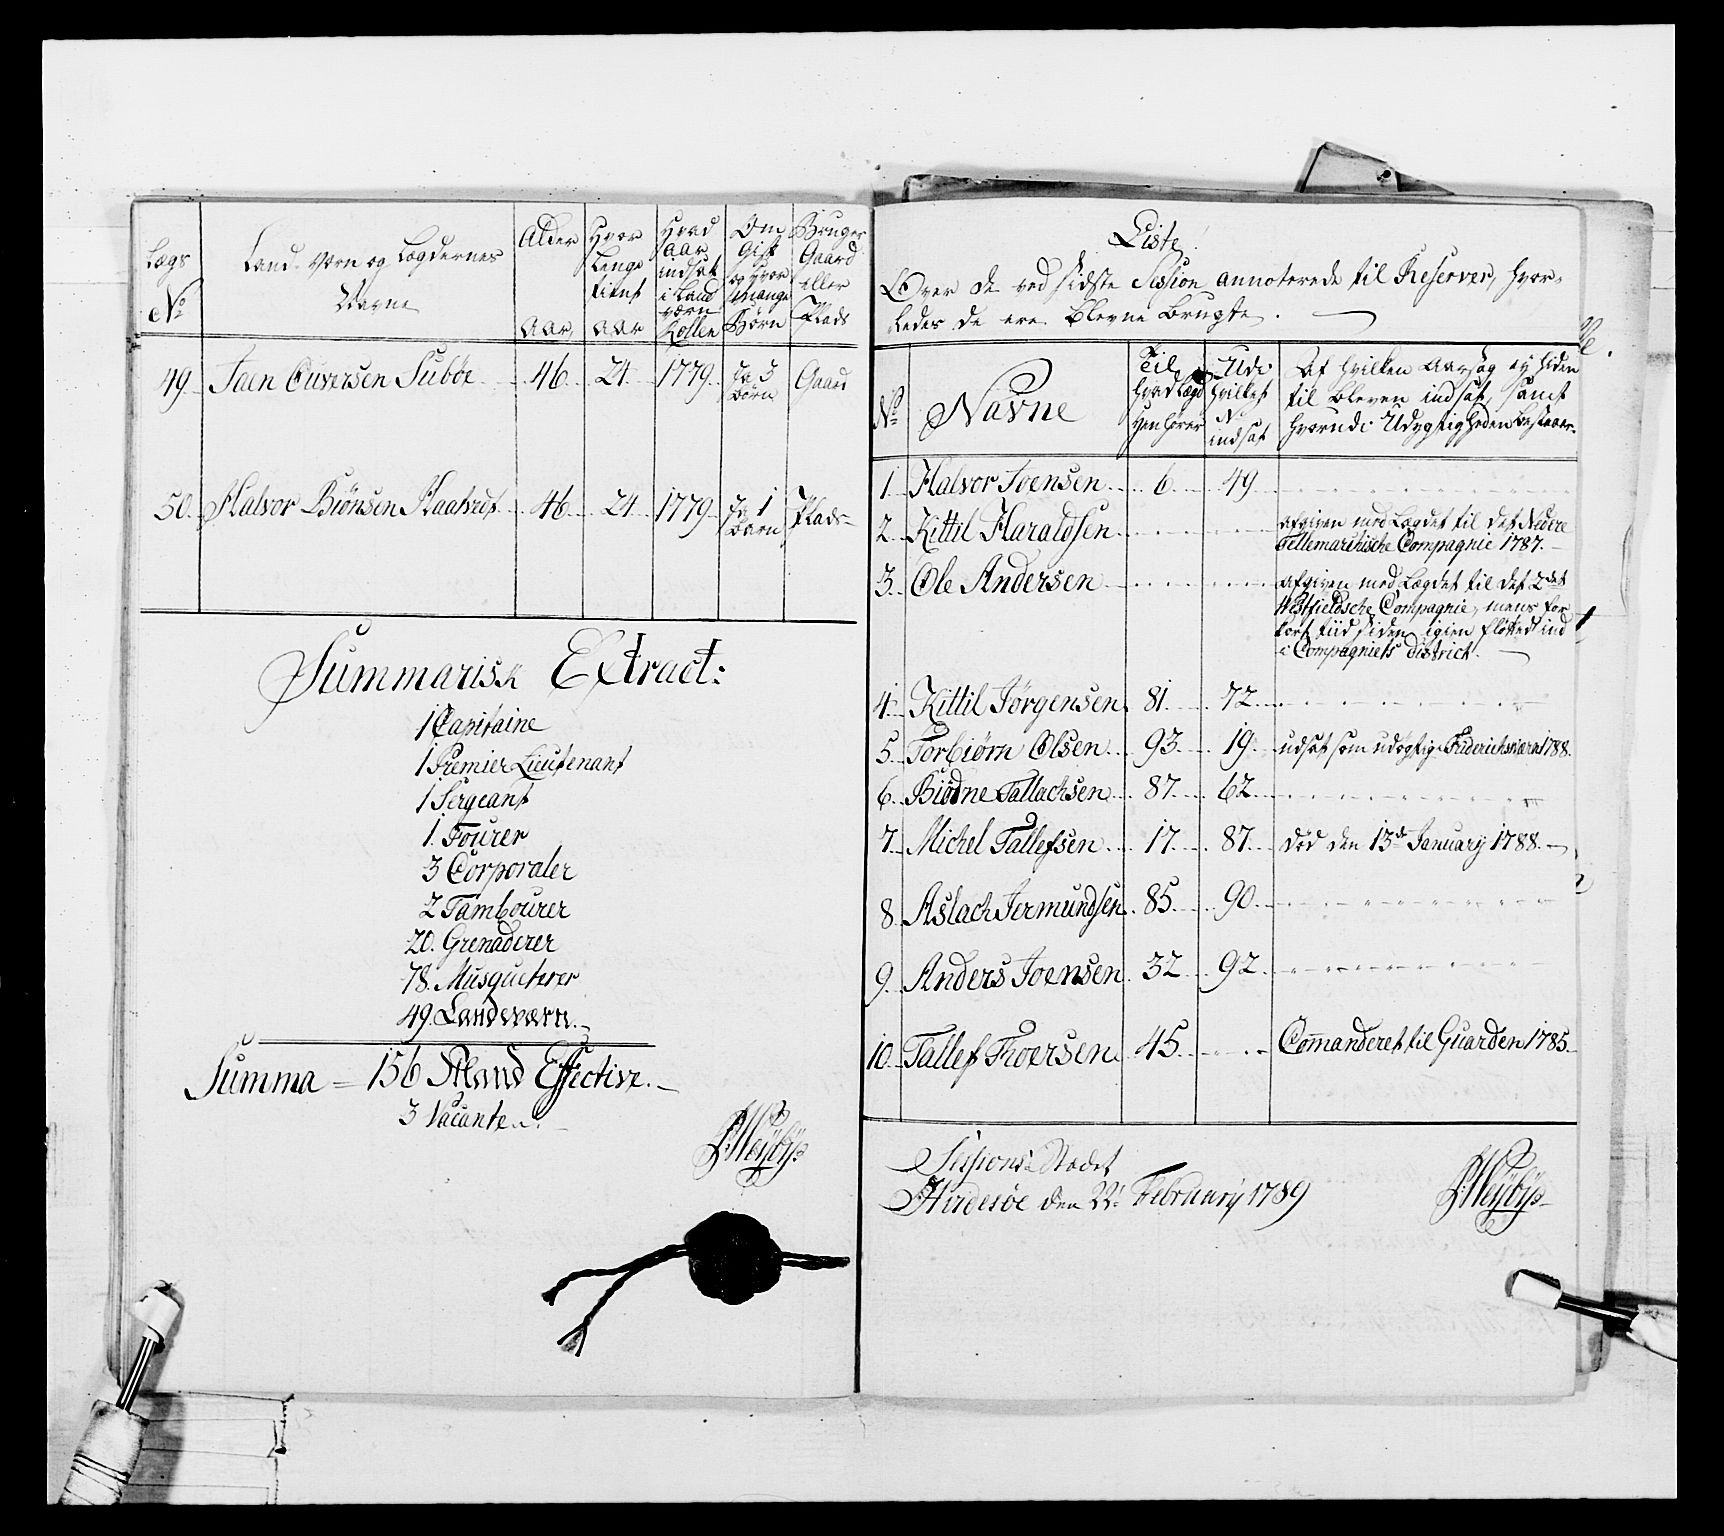 Lægs
No
Land-Værn og Lægdernes
Navne
Alder
Aar
Hvor
Længe
tient
Aar
Hvad
Aar
indsat
i Land
værn
Rollen
Om
Gift
og hvor
mange
Børn
Bruger
Gaard
eller
Plads
49. Jaen Ouversen Suböe 46. 24. 1779. Ja 3 Börn Gaard
50. Halvor Biönsen 46. 24. 1779. Ja 1 Barn Plads
Summarisk Extract:
1 Capitaine
1 Premier Lieutenant
1 Sergeant
1. Fourer
3 Corporaler
2 Tambourer
20. Grenaderer
78. Musqueterer
49. Landværn.
Summa = 156 Mand Effective.
3 Vacante.
Liste
Over de ved sidste Session annoterede til Reserver, hvor-
ledes de ere blevne Brugte.
No
Navne
Til
hvad Lægd
hen hører
Udi
hvilket
No
indsat
Af hvilken Aarsag ey siden
til bleven indsat, samt
hvorudi Udygtigheden bestaaer.
1. Halvor Joensen 6. 49
2. Kittil Haraldsen afgiven med Lægdet til det Nedre
Tellemarkische Compagnie 1787.
3. Ole Andersen afgiven med Lægdet til det 2det
Westfieldsche Compagnie, mens for
kort tiid siden igien fløttet ind
i Compagniets district.
4. Kittil Jörgensen 81. 72.
5. Torbiörn Olsen 93. 19. udsat som udögtig Friderichsværn 1788.
6. Biödne Tallachsen 87. 62.
7. Michel Tallefsen 17. 87. död den 13de January 1788.
8. Aslach Jermundsen 85. 90.
9. Anders Joensen 32. 92.
10. Tallef Thoersen 45. Commanderet til Guarden 1785.
Sessions Stædet
den 22. February 1789